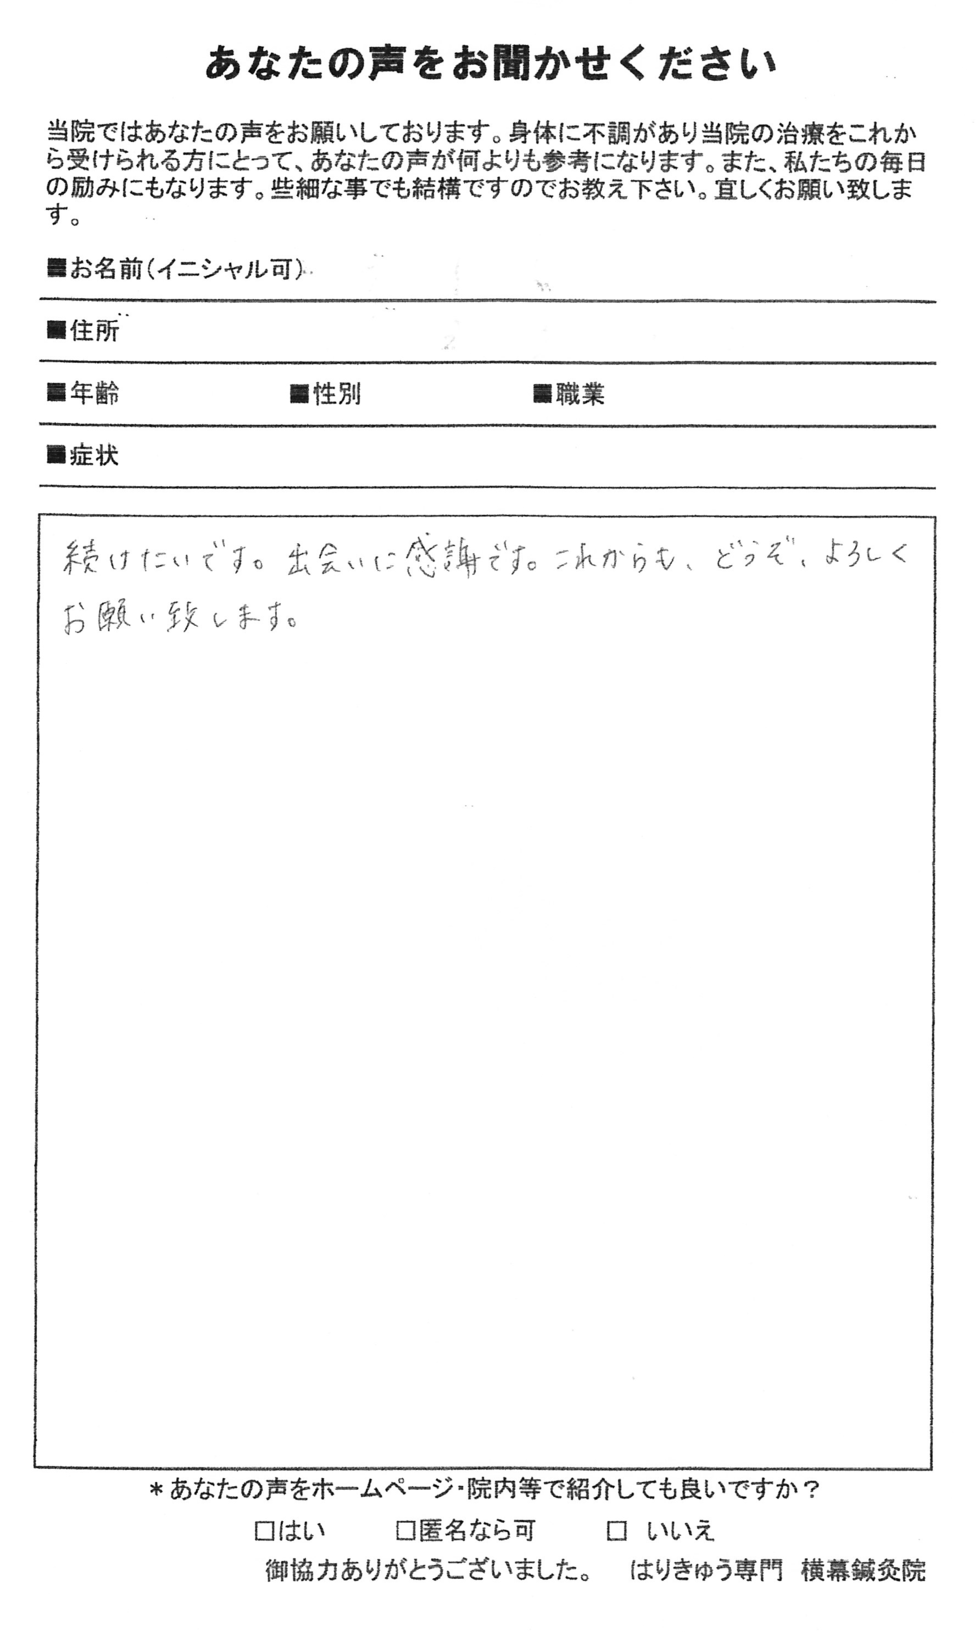 あなたの声をお聞かせください
当院ではあなたの声をお願いしております。身体に不調があり当院の治療をこれか
ら受けられる方にとって、あなたの声が何よりも参考になります。また、私たちの毎日
の励みにもなります。些細な事でも結構ですのでお教え下さい。宜しくお願い致しま
す。
■お名前(イニシャル可)
■住所
■年齢 ■性別 ■職業
■症状
続けたいです。出会いに感謝です。これからも、どうぞ、よろしく
お願い致します。
*あなたの声をホームページ・院内等で紹介しても良いですか?
□はい □匿名なら可 □ いいえ
御協力ありがとうございました。 はりきゅう専門 横幕鍼灸院